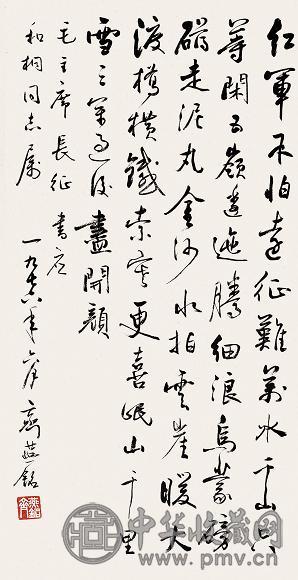 紅軍不怕遠征難萬水千山只
等閑五嶺逶迤騰細浪烏蒙磅
礴走泥丸金沙水拍雲崖暖大
渡橋橫鐵索寒更喜岷山千里
雪三軍過後盡開顏
毛主席長征 書應
和桐同志屬 一九 年 齊燕銘
中华收藏网
www.pmv.cn